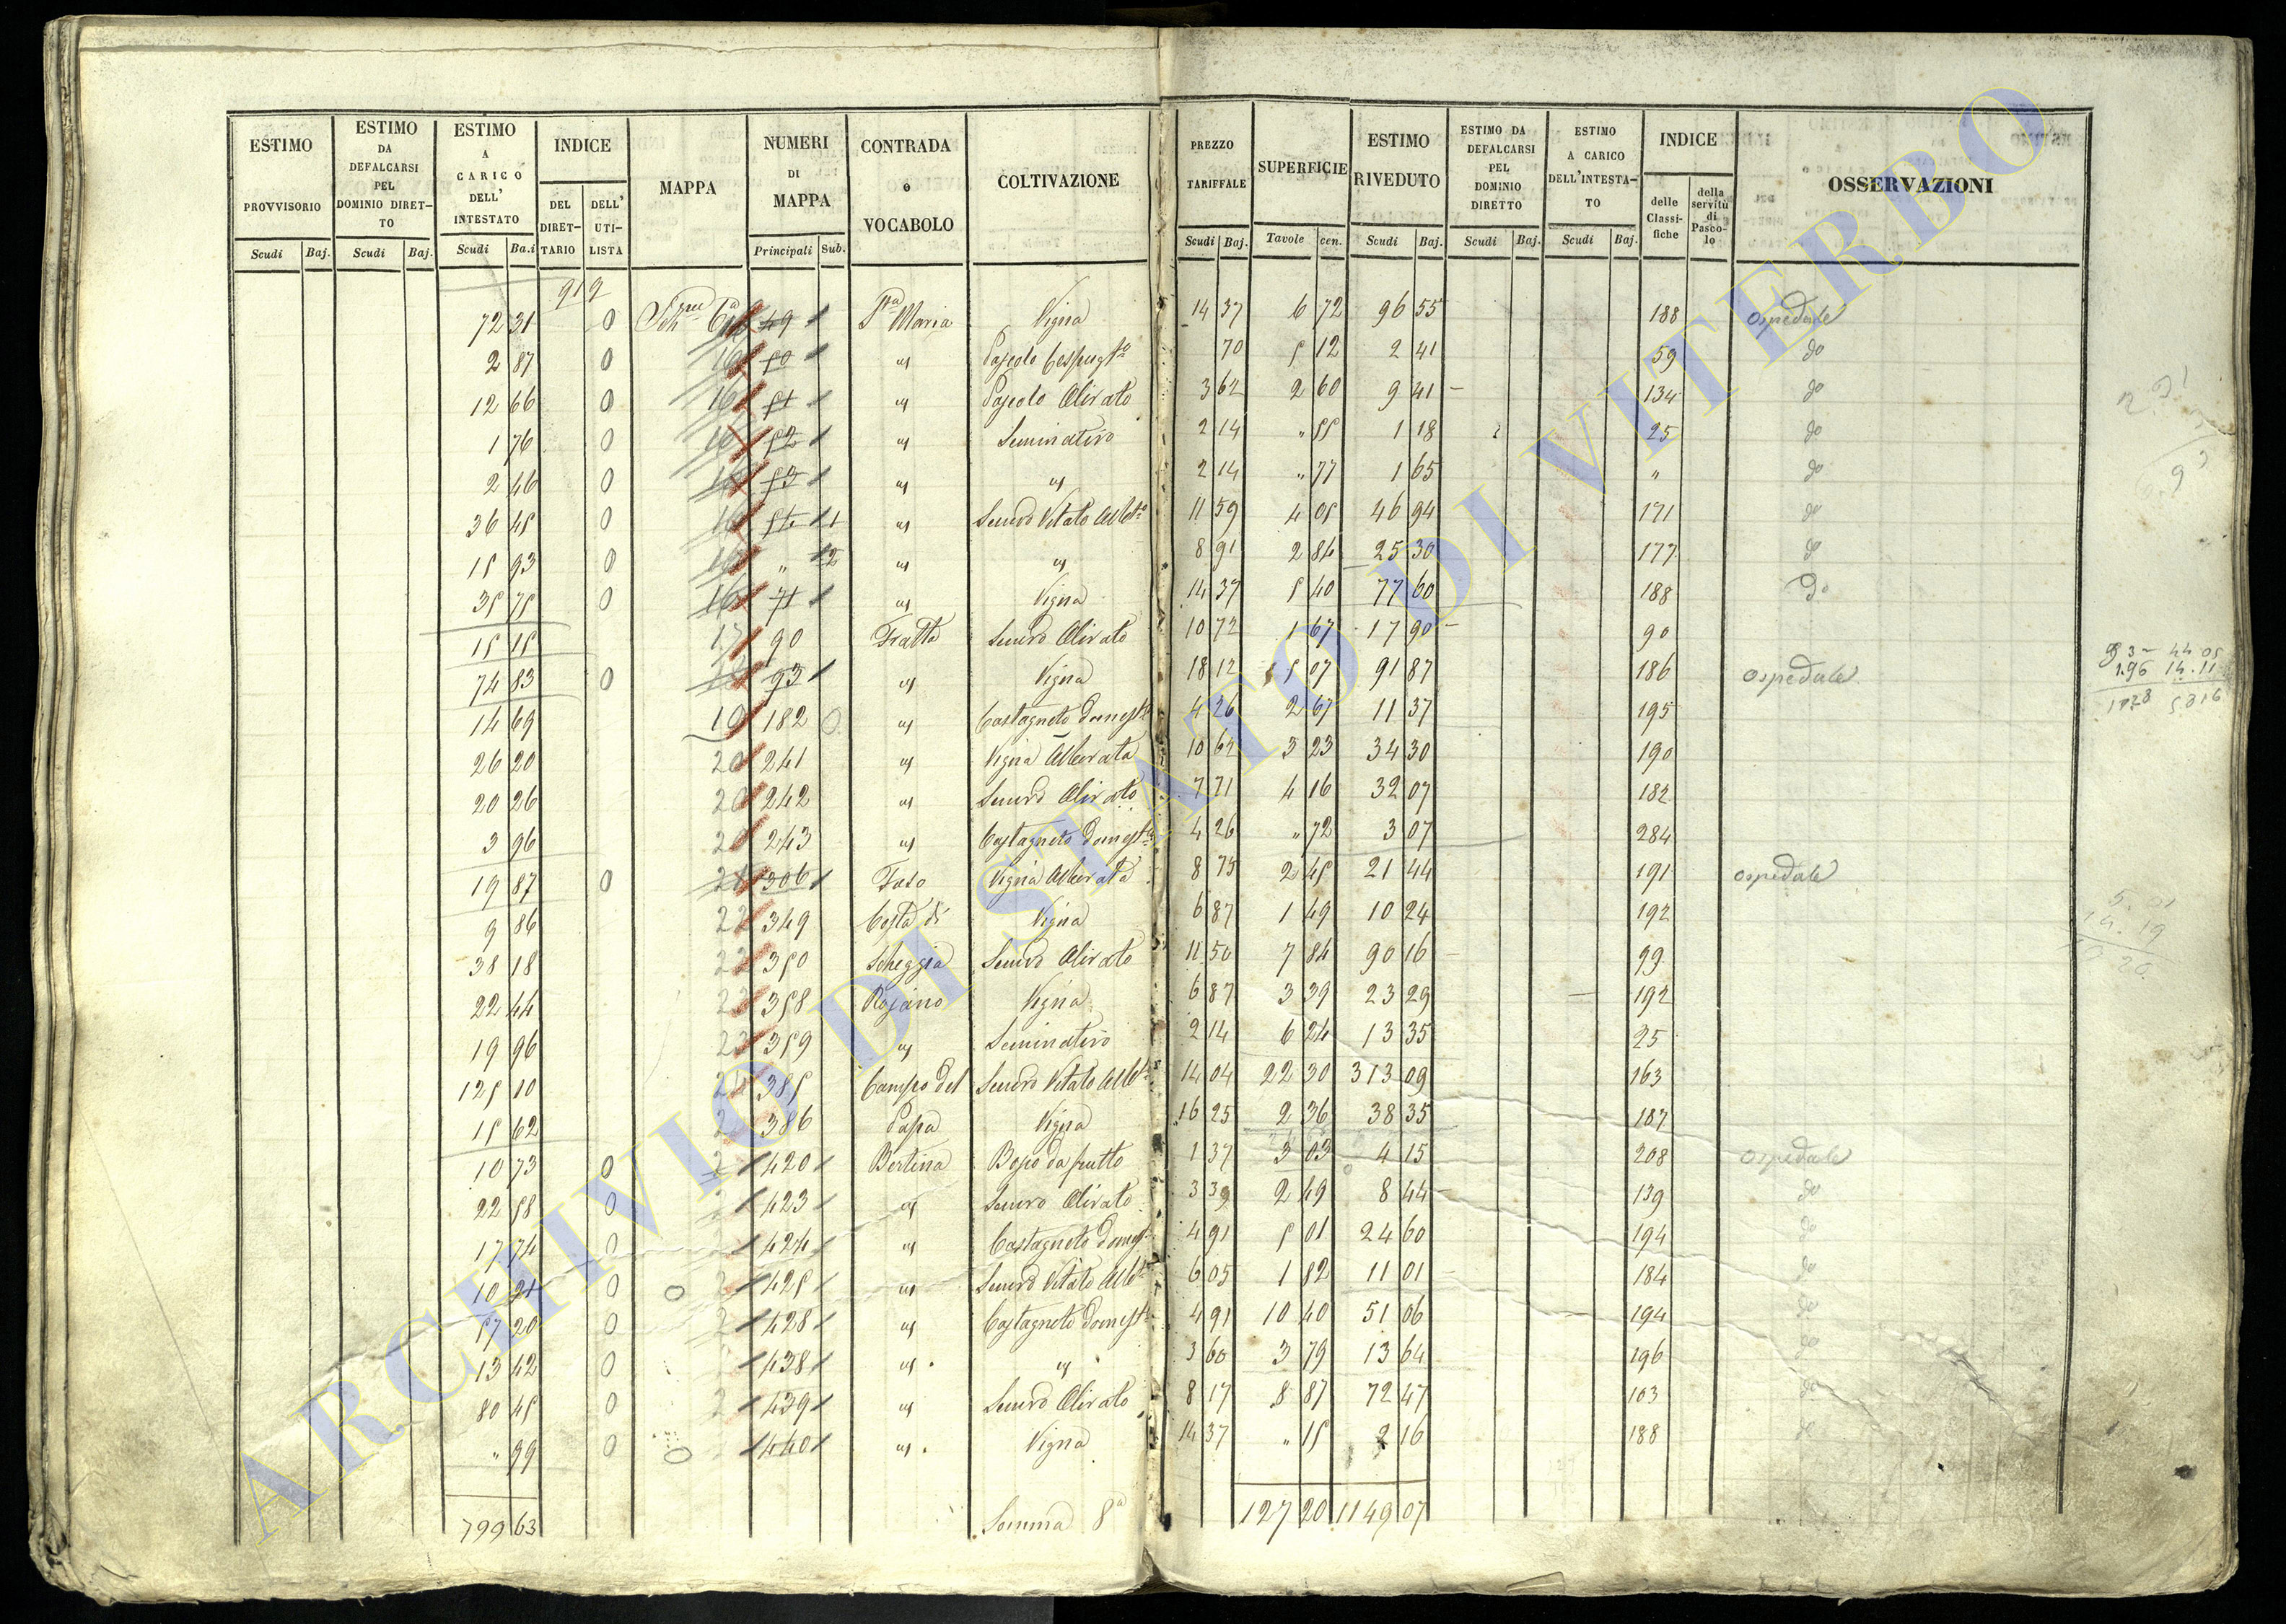 ESTIMO PROVVISORIO Scudi Baj.
ESTIMO DA DEFALCARSI PEL DOMINIO DIRETTO Scudi Baj.
ESTIMO A CARICO DELL' INTESTATO Scudi Ba.i
INDICE DEL DIRETTARIO DELL' UTILISTA
MAPPA
NUMERI DI MAPPA Principali Sub.
CONTRADA o VOCABOLO
COLTIVAZIONE
PREZZO TARIFFALE Scudi Baj.
SUPERFICIE Tavole cen.
ESTIMO RIVEDUTO Scudi Baj.
ESTIMO DA DEFALCARSI PEL DOMINIO DIRETTO Scudi Baj.
ESTIMO A CARICO DELL'INTESTATO Scudi Baj.
INDICE delle Classifiche della servitù di Pascolo
OSSERVAZIONI
919
72 31 0 49 Sta Maria Vigna 14 37 6 72 96 55 188 ospedale
2 87 0 16 50 " Pascolo Cespugto 70 5 12 2 41 59 do
12 66 0 16 51 " Pascolo Olivato 3 62 2 60 9 41 134 do
1 76 0 16 52 " Seminativo 2 14 " 55 1 18 25 do
2 46 0 16 53 " " 2 14 " 77 1 65 " do
36 45 0 16 54 1 " Semvo Vitato Albto 11 59 4 05 46 94 171 do
15 93 0 16 " 2 " " 8 91 2 84 25 30 177 do
35 75 0 16 71 " Vigna 14 37 5 40 77 60 188 do
15 15 17 90 Fratta Semvo Olivato 10 72 1 67 17 90 90
74 83 0 93 " Vigna 18 12 5 07 91 87 186 ospedale
14 69 19 182 0 " Castagneto domesto 4 26 2 67 11 37 195
26 20 20 241 " Vigna Alberata 10 62 3 23 34 30 190
20 26 20 242 " Semvo Olivato 7 71 4 16 32 07 182
3 96 20 243 " Castagneto domesto 4 26 " 72 3 07 284
19 87 0 21 306 Foso Vigna Alberata 8 75 2 45 21 44 191 ospedale
9 86 22 349 Costa di Vigna 6 87 1 49 10 24 192
38 18 22 350 Scheggia Semvo Olivato 11 50 7 84 90 16 99
22 44 23 358 Rojano Vigna 6 87 3 39 23 29 192
19 96 23 359 " Seminativo 2 14 6 24 13 35 25
125 10 24 385 Campo del Semvo Vitato Albto 14 04 22 30 313 09 163
15 62 2 386 Papa Vigna 16 25 2 36 38 35 187
10 73 0 2 420 Bertina Bosco da frutto 1 37 3 03 4 15 208 ospedale
22 58 0 423 " Semvo Olivato 3 39 2 49 8 44 139 do
17 74 0 424 " Castagneto domest 4 91 5 01 24 60 194 do
10 21 0 0 2 425 " Semvo Vitato Albto 6 05 1 82 11 01 184 do
57 20 0 2 428 " Castagneto domest 4 91 10 40 51 06 194 do
13 42 0 438 " " 3 60 3 79 13 64 196 do
80 45 0 2 439 " Semvo Olivato 8 17 8 87 72 47 103 do
" 99 0 0 440 " Vigna 14 37 " 15 2 16 188 do
799 63 Somma 8a 127 20 1149 07
ARCHIVIO DI STATO DI VITERBO